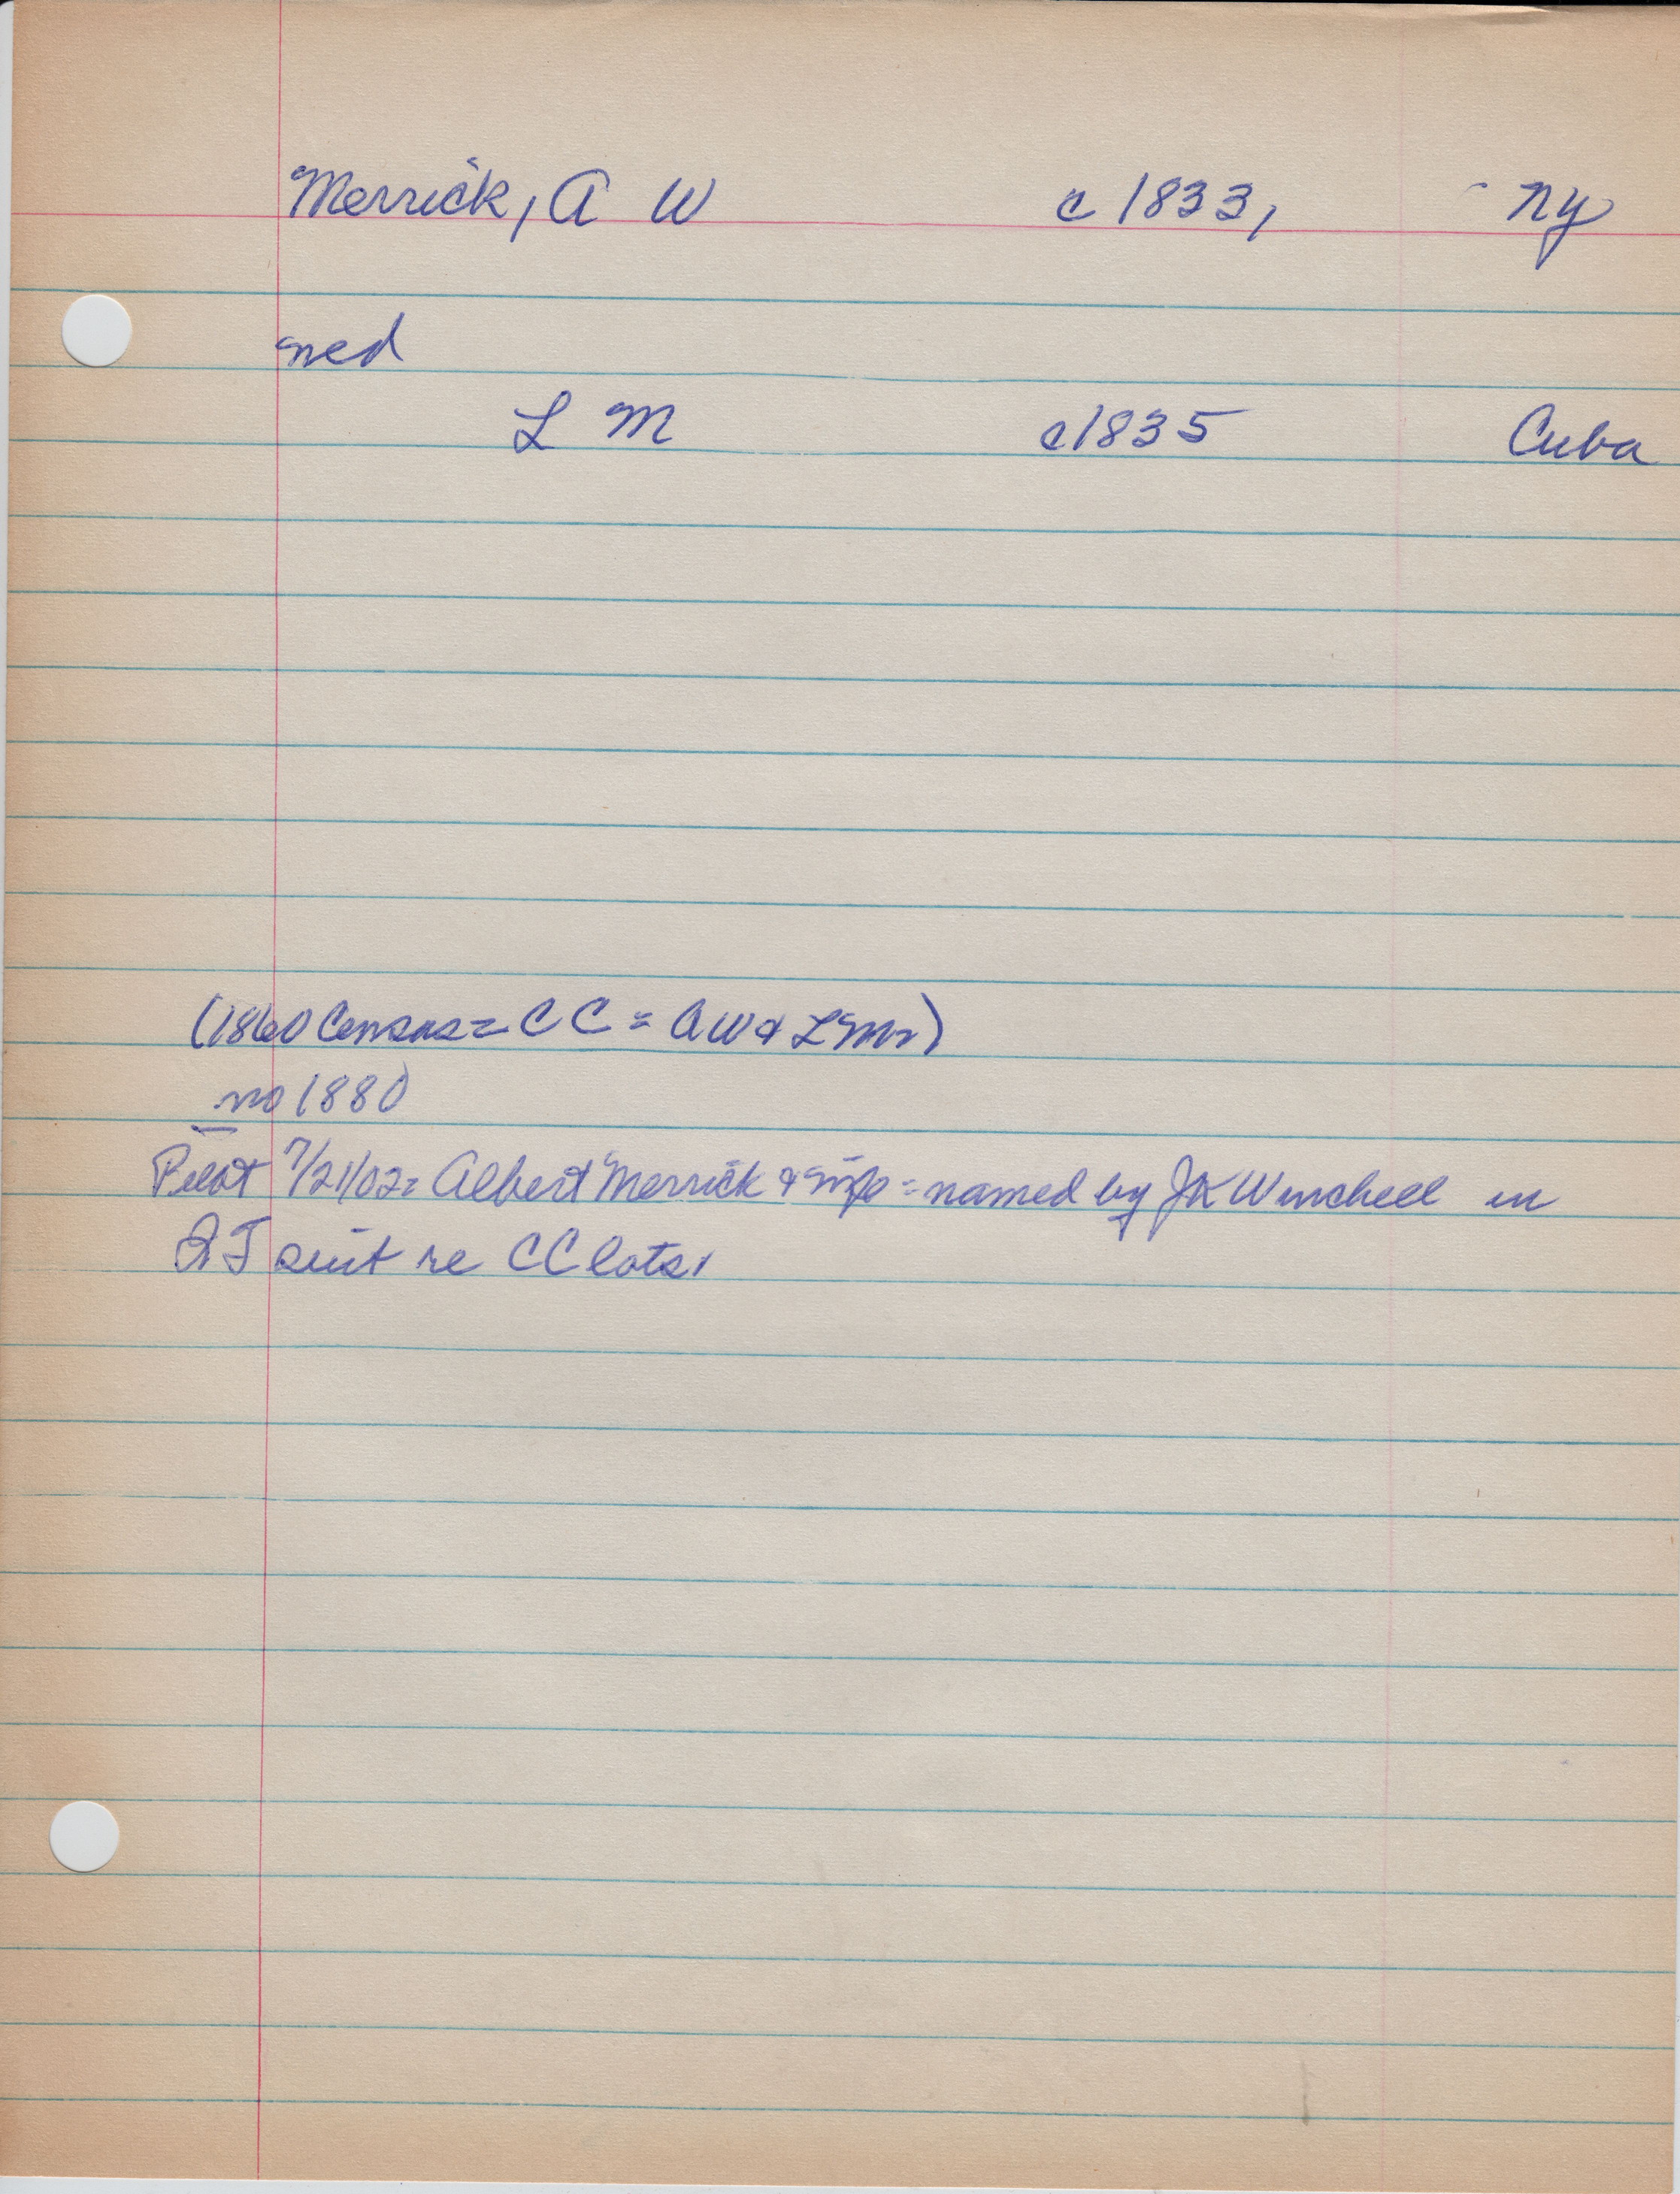 Merrick, A W c 1833, NY
med
L M c1835 Cuba
(1860 Census = CC = AW & LM)
no 1880
Pilot 7/21/02 = Albert Merrick & wife = named by JK Winchell in
QT suit re CC lots.